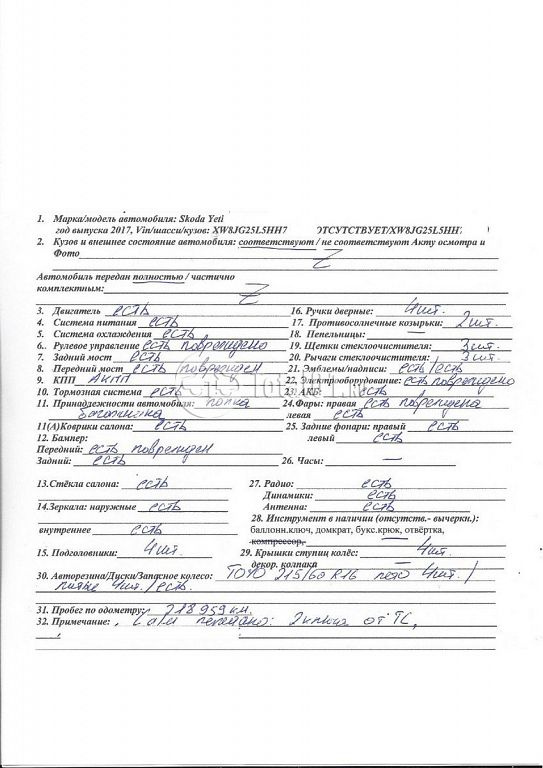 1. Марка/модель автомобиля: Skoda Yeti
год выпуска 2017, Vin/шасси/кузов: XW8JG25L5HH7 ОТСУТСТВУЕТ/XW8JG25L5HH
2. Кузов и внешнее состояние автомобиля: соответствуют / не соответствуют Акту осмотра и
Фото
Автомобиль передан полностью / частично
комплектным:
3. Двигатель есть
4. Система питания есть
5. Система охлаждения есть
6.. Рулевое управление есть повреждено
7. Задний мост есть
8. Передний мост есть / поврежден
9. КПП АКПП
10. Тормозная система есть
11. Принадлежности автомобиля: полка
багажника
11(А)Коврики салона: есть
12. Бампер:
Передний: есть поврежден
Задний: есть
13.Стёкла салона: есть
14.Зеркала: наружные есть
внутреннее есть
15. Подголовники: 4шт.
16. Ручки дверные: 4шт.
17. Противосолнечные козырьки: 2шт.
18. Пепельницы: —
19. Щетки стеклоочистителя: 3шт.
20. Рычаги стеклоочистителя: 3шт.
21. Эмблемы/надписи: есть/есть
22. Электрооборудование: есть повреждено
23. АКБ: есть
24.Фары: правая есть повреждена
левая есть
25. Задние фонари: правый есть
левый есть
26. Часы: —
27. Радио: есть
Динамики: есть
Антенна: есть
28. Инструмент в наличии (отсутств.- вычеркн.):
баллонн.ключ, домкрат, букс.крюк, отвёртка,
компрессор,
29. Крышки ступиц колёс: 4шт.
декор. колпака —
30. Авторезина/Диски/Запасное колесо: TOYO 215/60 R16 лето 4шт./
литые 4шт./есть.
31. Пробег по одометру: 218959км.
32. Примечание: С а/м передано: 2ключа от ТС,